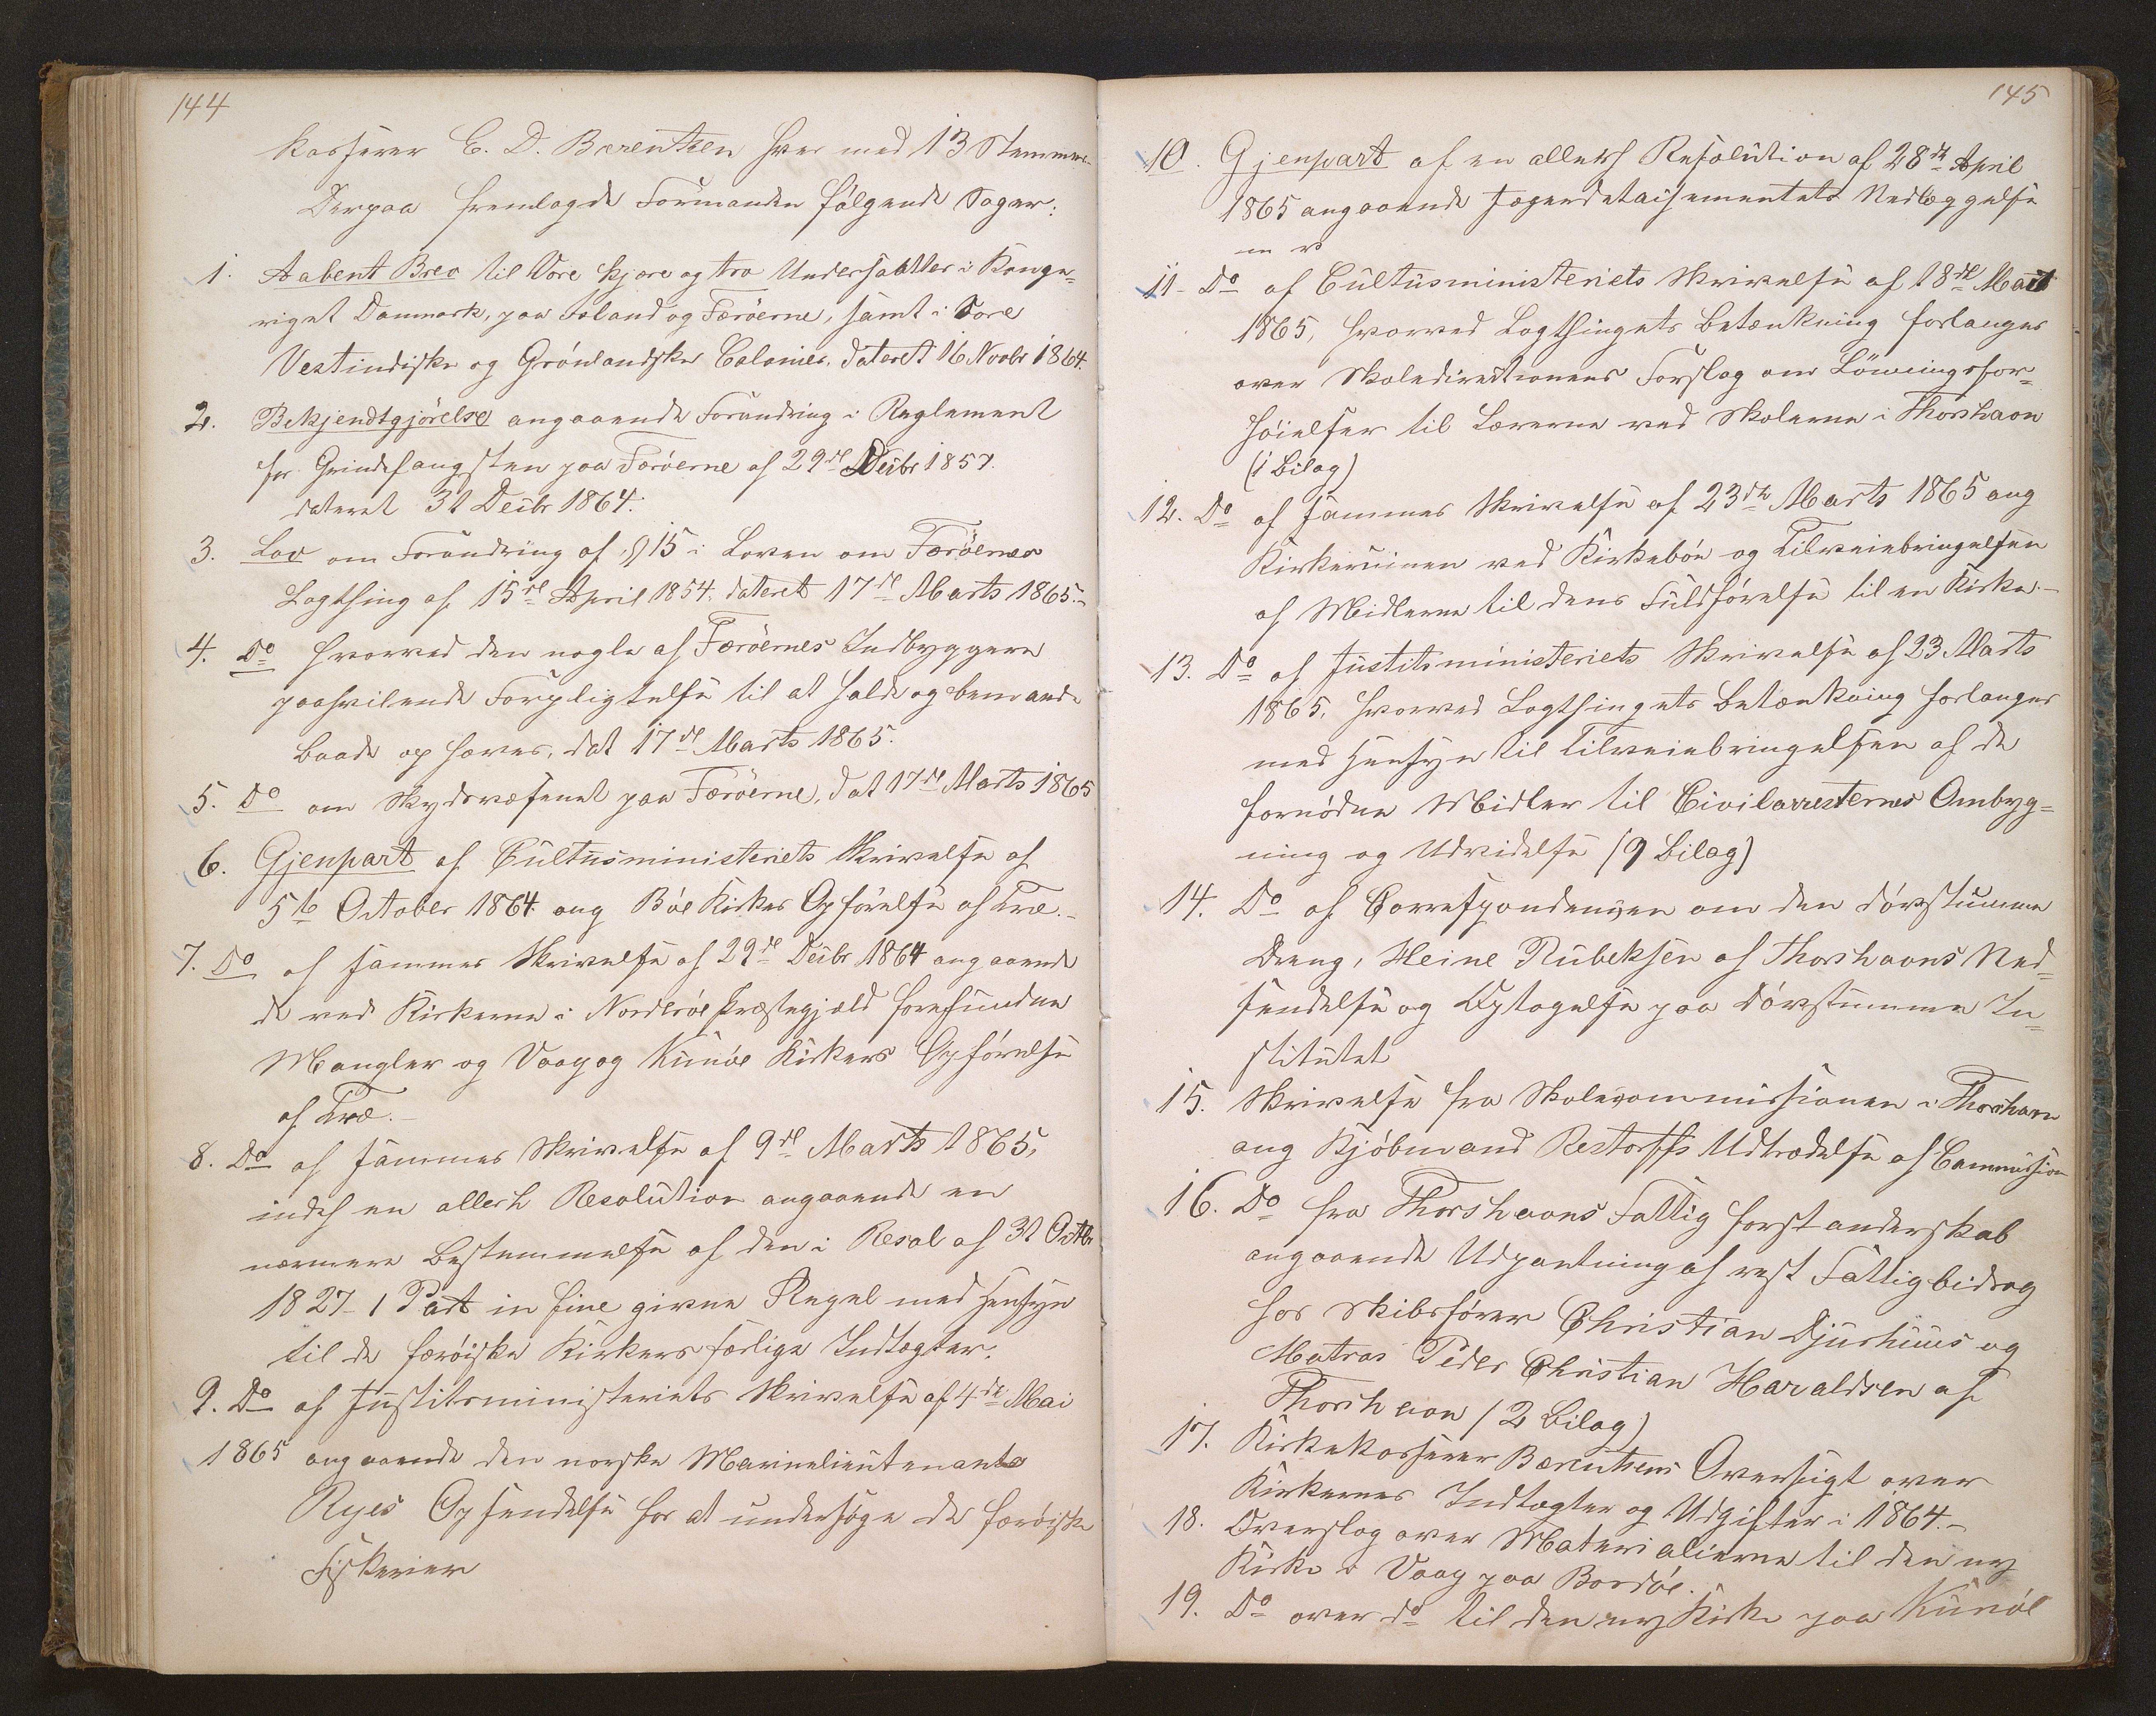 144
Kasserer E. D. Bærentsen hver med 13 Stemmer
Derpaa fremlagde Formanden følgende Sager:
1. Aabent Brev til Vore kjære og tro Undersaatter i Konge=
riget Danmark, paa Island og Færöerne, samt i Vore
Vestindiske og Grönlandske Colonier, dateret 16 Novbr 1864.
2. Bekjendtgjörelse angaaende Forandring i Reglement
for Grindefangsten paa Færöerne af 29de Decbr 1857.
dateret 31 Decbr 1864.
3. Lov om Forandring af § 15 i Loven om Færöernes
Lagthing af 15de April 1854. dateret 17de Marts 1865.-
4. Do hvorved den nogle af Færöernes Indbyggere
paahvilende Forpligtelse til at holde og bemande
Baade ophæves, dat 17de Marts 1865.
5. Do om Skydsvæsenet paa Færöerne, dat 17de Marts 1865
6. Gjenpart af Cultusministeriets Skrivelse af
5te October 1864 ang Böe Kirkes Opförelse af Træ.-
7. Do af sammes Skrivelse af 29de Decbr 1864 angaaende
de ved Kirkerne i Norderöe Præstegjæld forefundne
Mangler og Vaag og Kunöe Kirkers Opförelse
af Træ.-
8. Do af sammes Skrivelse af 9de Marts 1865,
indeh en allerh Resolution angaaende en
nærmere Bestemmelse af den i Resol af 31 Octbr
1827 - 1 Post in fine givne Regel med Hensyn
til de færöiske Kirkers særlige Indtægter.
9. Do af Justitsministeriets Skrivelse af 4de Mai
1865 angaaende den norske Marinelieutenants
Ryes Opsendelse for at undersöge de færöiske
Fiskerier
145
10. Gjenpart af en allerh Resolution af 28de April
1865 angaaende Jægerdetaischementets Nedlæggelse
m v
11- Do af Cultusministeriets Skrivelse af 18de Marts
1865, hvorved Lagthingets Betænkning forlanges
over Skoledirectionens Forslag om Lönningsfor=
höielser til Lærerne ved Skolerne i Thorshavn
(1 Bilag)
12. Do af sammes Skrivelse af 23de Marts 1865 ang
Kirkeruinen ved Kirkeböe og Tilveiebringelsen
af Midlerne til dens Fuldförelse til en Kirke.-
13. Do af Justitsministeriets Skrivelse af 23 Marts
1865, hvorved Lagthingets Betænkning forlanges
med Hensyn til Tilveiebringelsen af de
fornödne Midler til Civilarresternes Ombyg=
ning og Udvidelse (9 Bilag)
14. Do af Correspondencen om den dövstumme
Dreng, Heine Rubeksen af Thorshavns Ned=
sendelse og Optagelse paa Dövstumme In=
stitutet
15. Skrivelse fra Skolecommissionen i Thorshavn
ang Kjöbmand Restorffs Udtrædelse af Commission
16. Do fra Thorshavns Fattigforstanderskab
angaaende Udpantning af rest Fattigbidrag
hos Skibsförer Christian Djurhuus og
Matros Peder Christian Haraldsen af
Thorshavn (2 Bilag)
17. Kirkekasserer Bærentsens Oversigt over
Kirkernes Indtægter og Udgifter i 1864.-
18. Overslag over Materialierne til den ny
Kirke i Vaag paa Bordöe.
19. Do over do til den ny Kirke paa Kunöe